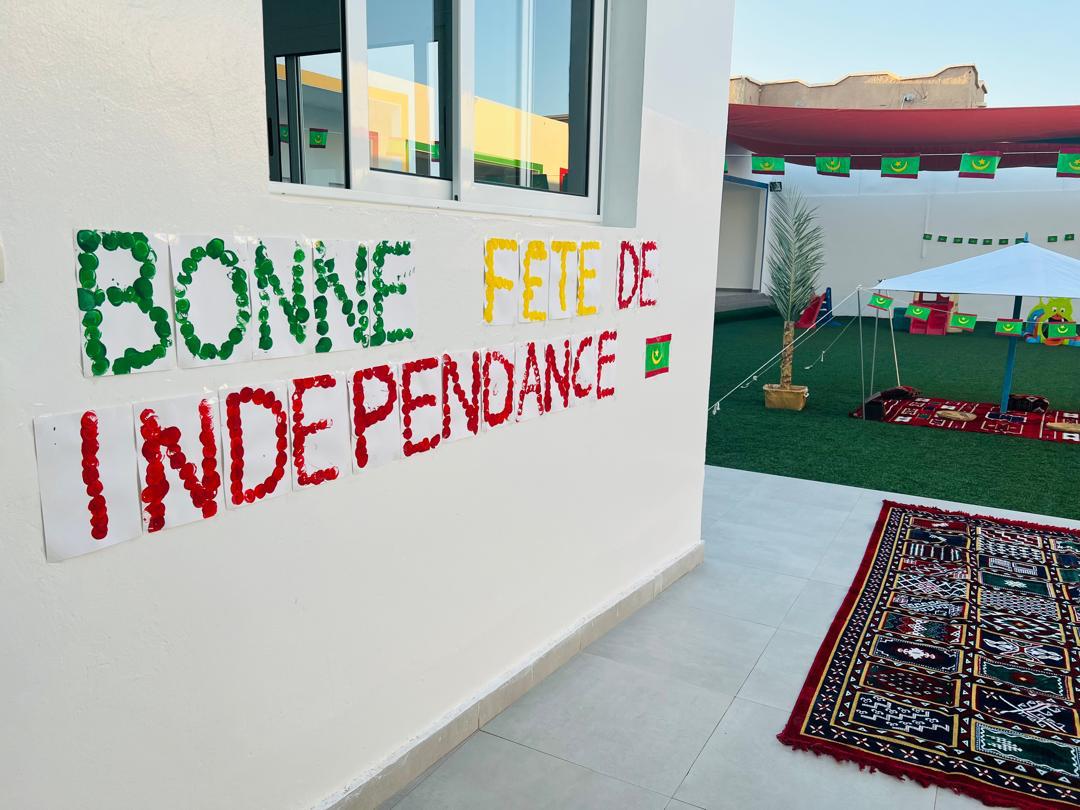 BONNE FETE DE
INDEPENDANCE